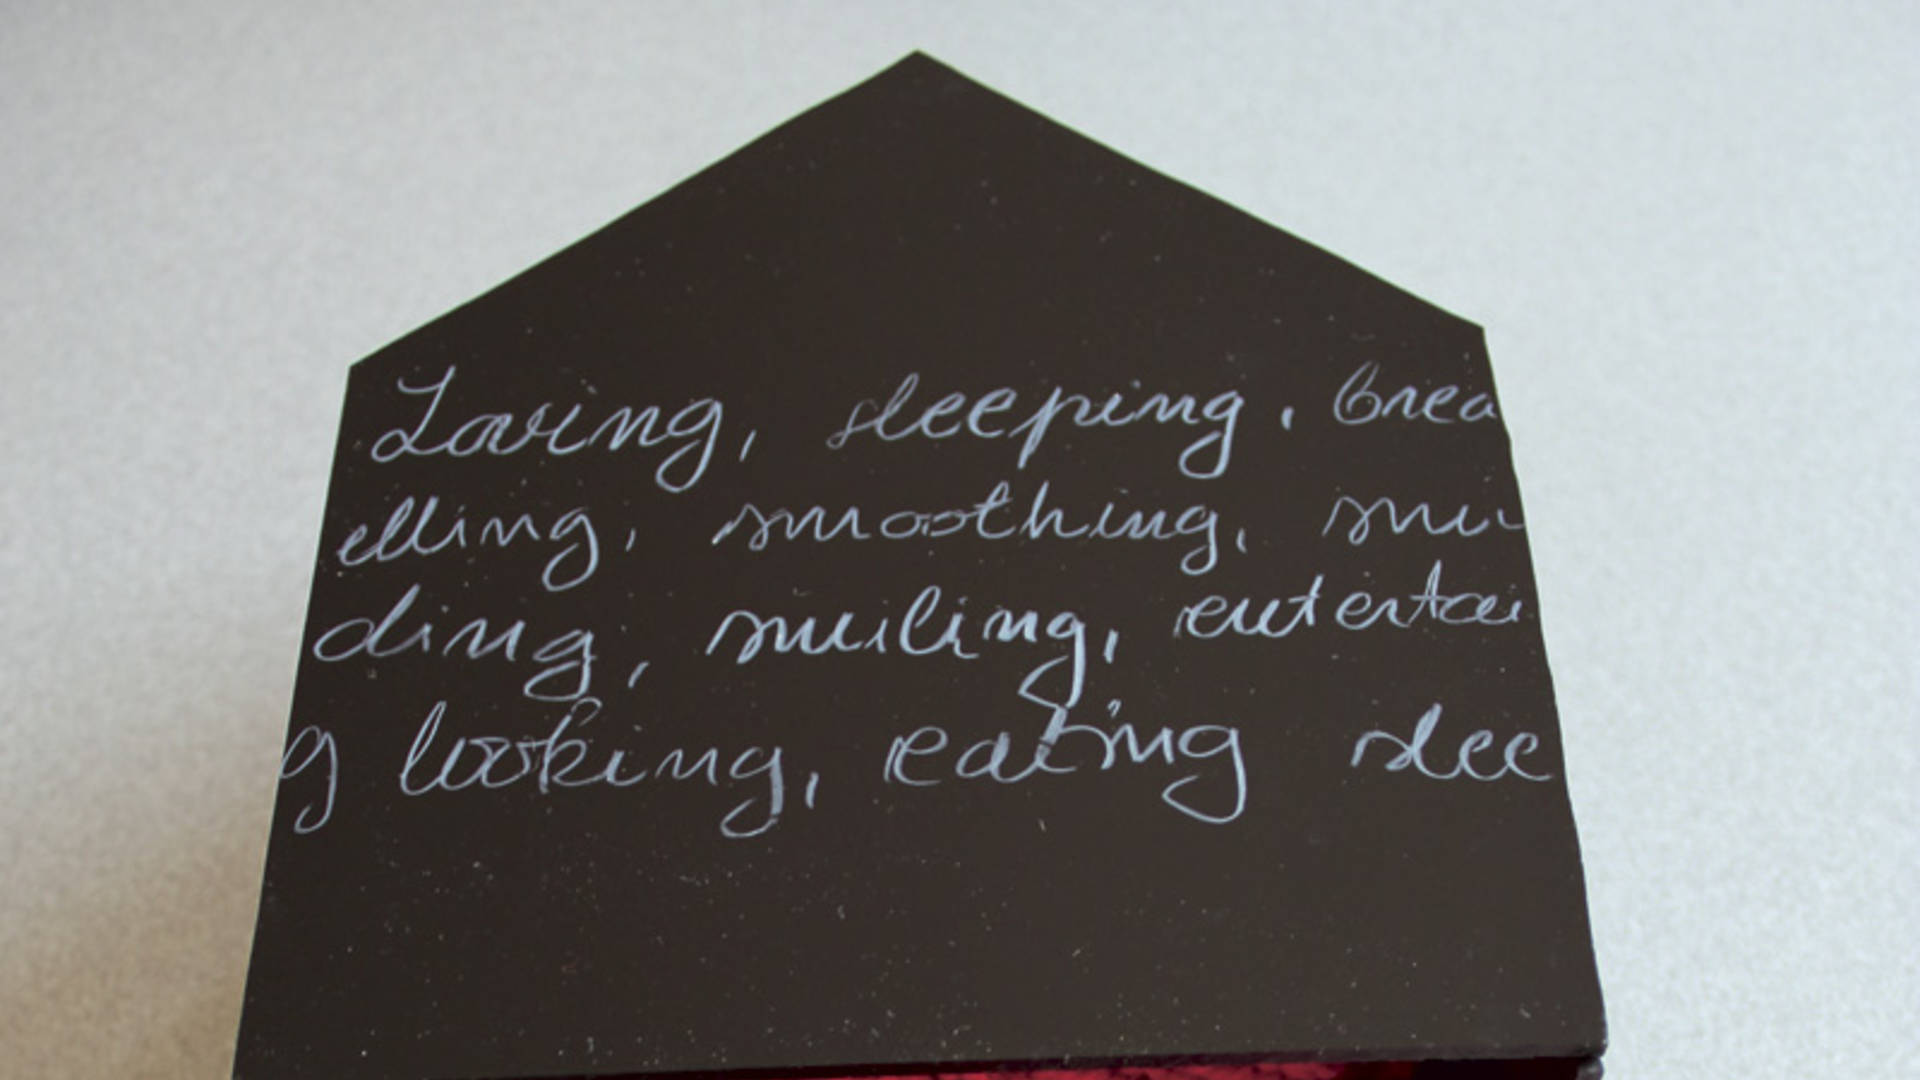 Loving, sleeping, brea
elling, smoothing, smi
ding, smiling, entertai
g looking, eating slee